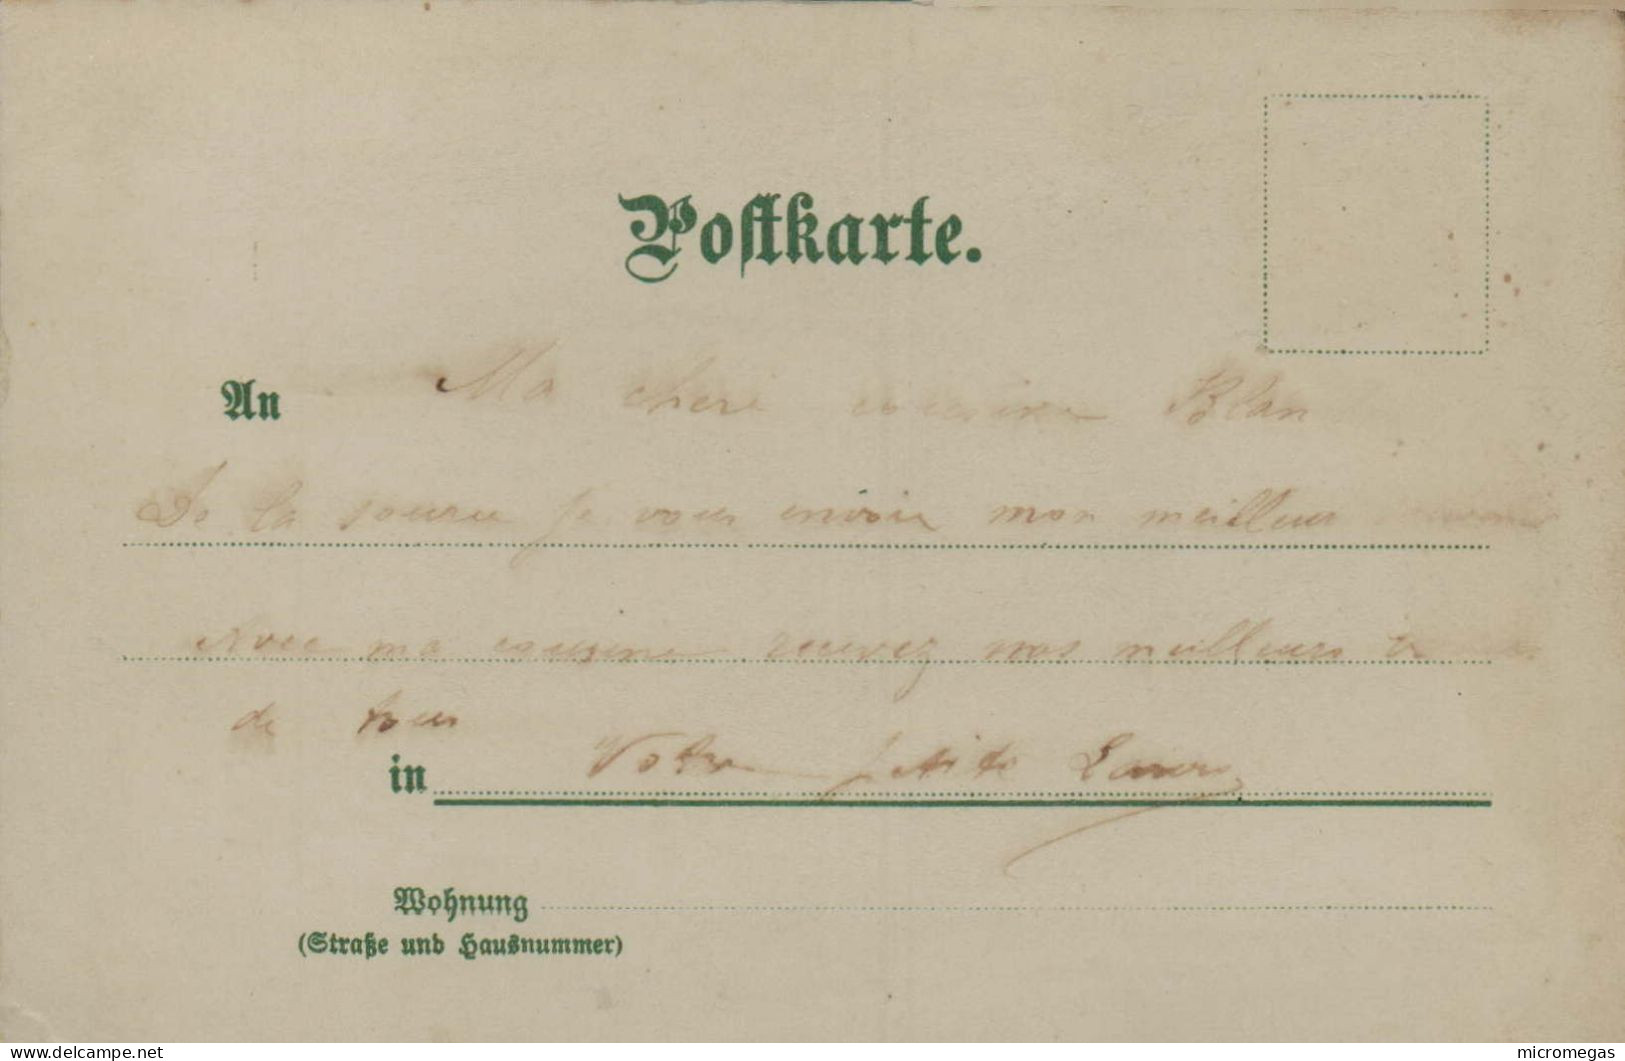 Postkarte.
An Ma chere cousine Blan
De la source je vous envoie mon meilleur
Avec ma cousine recevez nos meilleurs
de tous
in Votre petite
Wohnung
(Straße und Hausnummer)
www.delcampe.net
micromegas